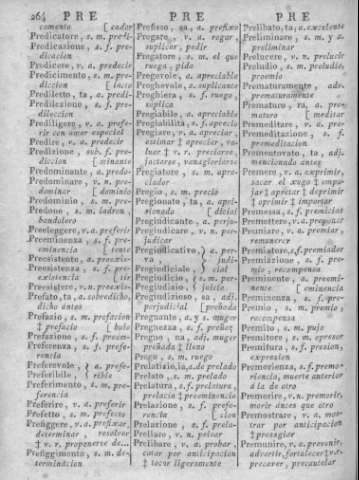 264 PRE PRE PRE
comento [cador
Predicatore, s. m. predi-
Predicazione, s. f. pre-
dicacion
Predicere, v. a. predecir
Predicimento, s. m. pre-
diccion [lecto
Prediletto, ta, a. predi-
Predilezione, s. f. pre-
dileccion
Prediligere, v. a. prefe-
rir con amor especial
Predire, v. a. predecir
Predizione, sub. f. pre-
diccion [minante
Predominante, a. predo-
Predominare, v. n. pre-
dominar [dominio
Predominio, s. m. pre-
Predone, s. m. ladron,
bandolero
Preeleggere, v. a. preferir
Preeminenza, s. f. pre-
eminencia [tente
Preesistente, a. preexis-
Preesistenza, s. f. pre-
existencia [tir
Preesistere, v. n. preexis-
Prefato, ta, a. sobredicho,
dicho antes
Prefazio, s. m. prefacion
‡ prefacio [bulo
Prefazione, s. f. preám-
Preferenza, s. f. prefe-
rencia
Preferevole, } a. prefe-
Preferibile, } rible
Preferimento, s. m. pre-
ferencia
Preferire, v. a. preferir
Prefetto, s. m. prefecto
Prefiggere, v. a. prefixar,
determinar, resolver
‡ v. r. proponerse de...
Prefiggimento, s. m. de-
terminacion
Prefisso, sa, a. prefixo
Pregare, v. a. rogar,
suplicar, pedir
Pregatore, s. m. el que
ruega, pide
Pregevole, a. apreciable
Preghevole, a. suplicante
Preghiera, s. f. ruego,
súplica
Pregiabile, a. apreciable
Pregiabilità, s. f. aprecio
Pregiare, v. a. apreciar,
estimar ‡ apreciar, va-
luar ‡ v. r. preciarse,
jactarse, vanagloriarse
Pregiatore, s. m. apre-
ciador
Pregio, s. m. precio
Pregionato, ta, a. apri-
sionado [dicial
Pregiudicante, a. perju-
Pregiudicare, v. n. per-
judicar
Pregiudicativo, } a. per-
va, } judi-
Pregiudiciale, } cial
Pregiudicio, } s. m. per-
Pregiudizio, } juicio
Pregiudizioso, sa, adj.
perjudicial [preñada
Pregnante, a. f. muger
Pregnezza, s. f. preñez
Pregno, na, adj. muger
preñada ‡ lleno
Prego, s. m. ruego
Prelatizio, ia, a. de prelado
Prelato, s. m. prelado
Prelatura, s. f. prelatura,
prelacia ‡ preeminencia
Prelazione, s. f. prefe-
rencia [cion
Prelezione, s. f. prelec-
Preliare, v. n. pelear
Prelibare, v. a. probar,
catar por anticipacion
‡ tocar ligeramente
Prelibato, ta, a. excelente
Preliminare, s. m. y a.
preliminar
Prelucere, v. n. prelucir
Preludio, s. m. preludio,
proemio
Prematuramente, adv.
prematuramente
Prematuro, ra, a. pre-
maturo [meditar
Premeditare, v. a. pre-
Premeditazione, s. f.
premeditacion
Prementovato, ta, adj.
mencionado antes
Premere, v. a. exprimir,
sacar el xugo ‡ impor-
tar ‡ apretar ‡ deprimir
‡ oprimir ‡ importar
Premessa, s. f. premision
Premettere, v. a. preponer
Premiare, v. a. premiar
remunerar
Premiatore, s. f. premiador
Premiazione, s. f. pre-
mio, recompensa
Preminente, a. preemi-
nente [eminencia
Preminenza, s. f. pre-
Premio, s. m. premio,
recompensa
Premito, s. m. pujo
Premitore, s. m. opresor
Premitura, s. f. presion,
expresion
Premorienza, s. f. premo-
riencia, muerte anterior
á la de otro
Premorire, v. n. premorir,
morir ántes que otro
Premostrare, v. a. mos-
trar por anticipacion
‡ presagiar
Premunire, v. a. prevenir,
advertir, fortalecer ‡ v. r.
precaver, precautelar